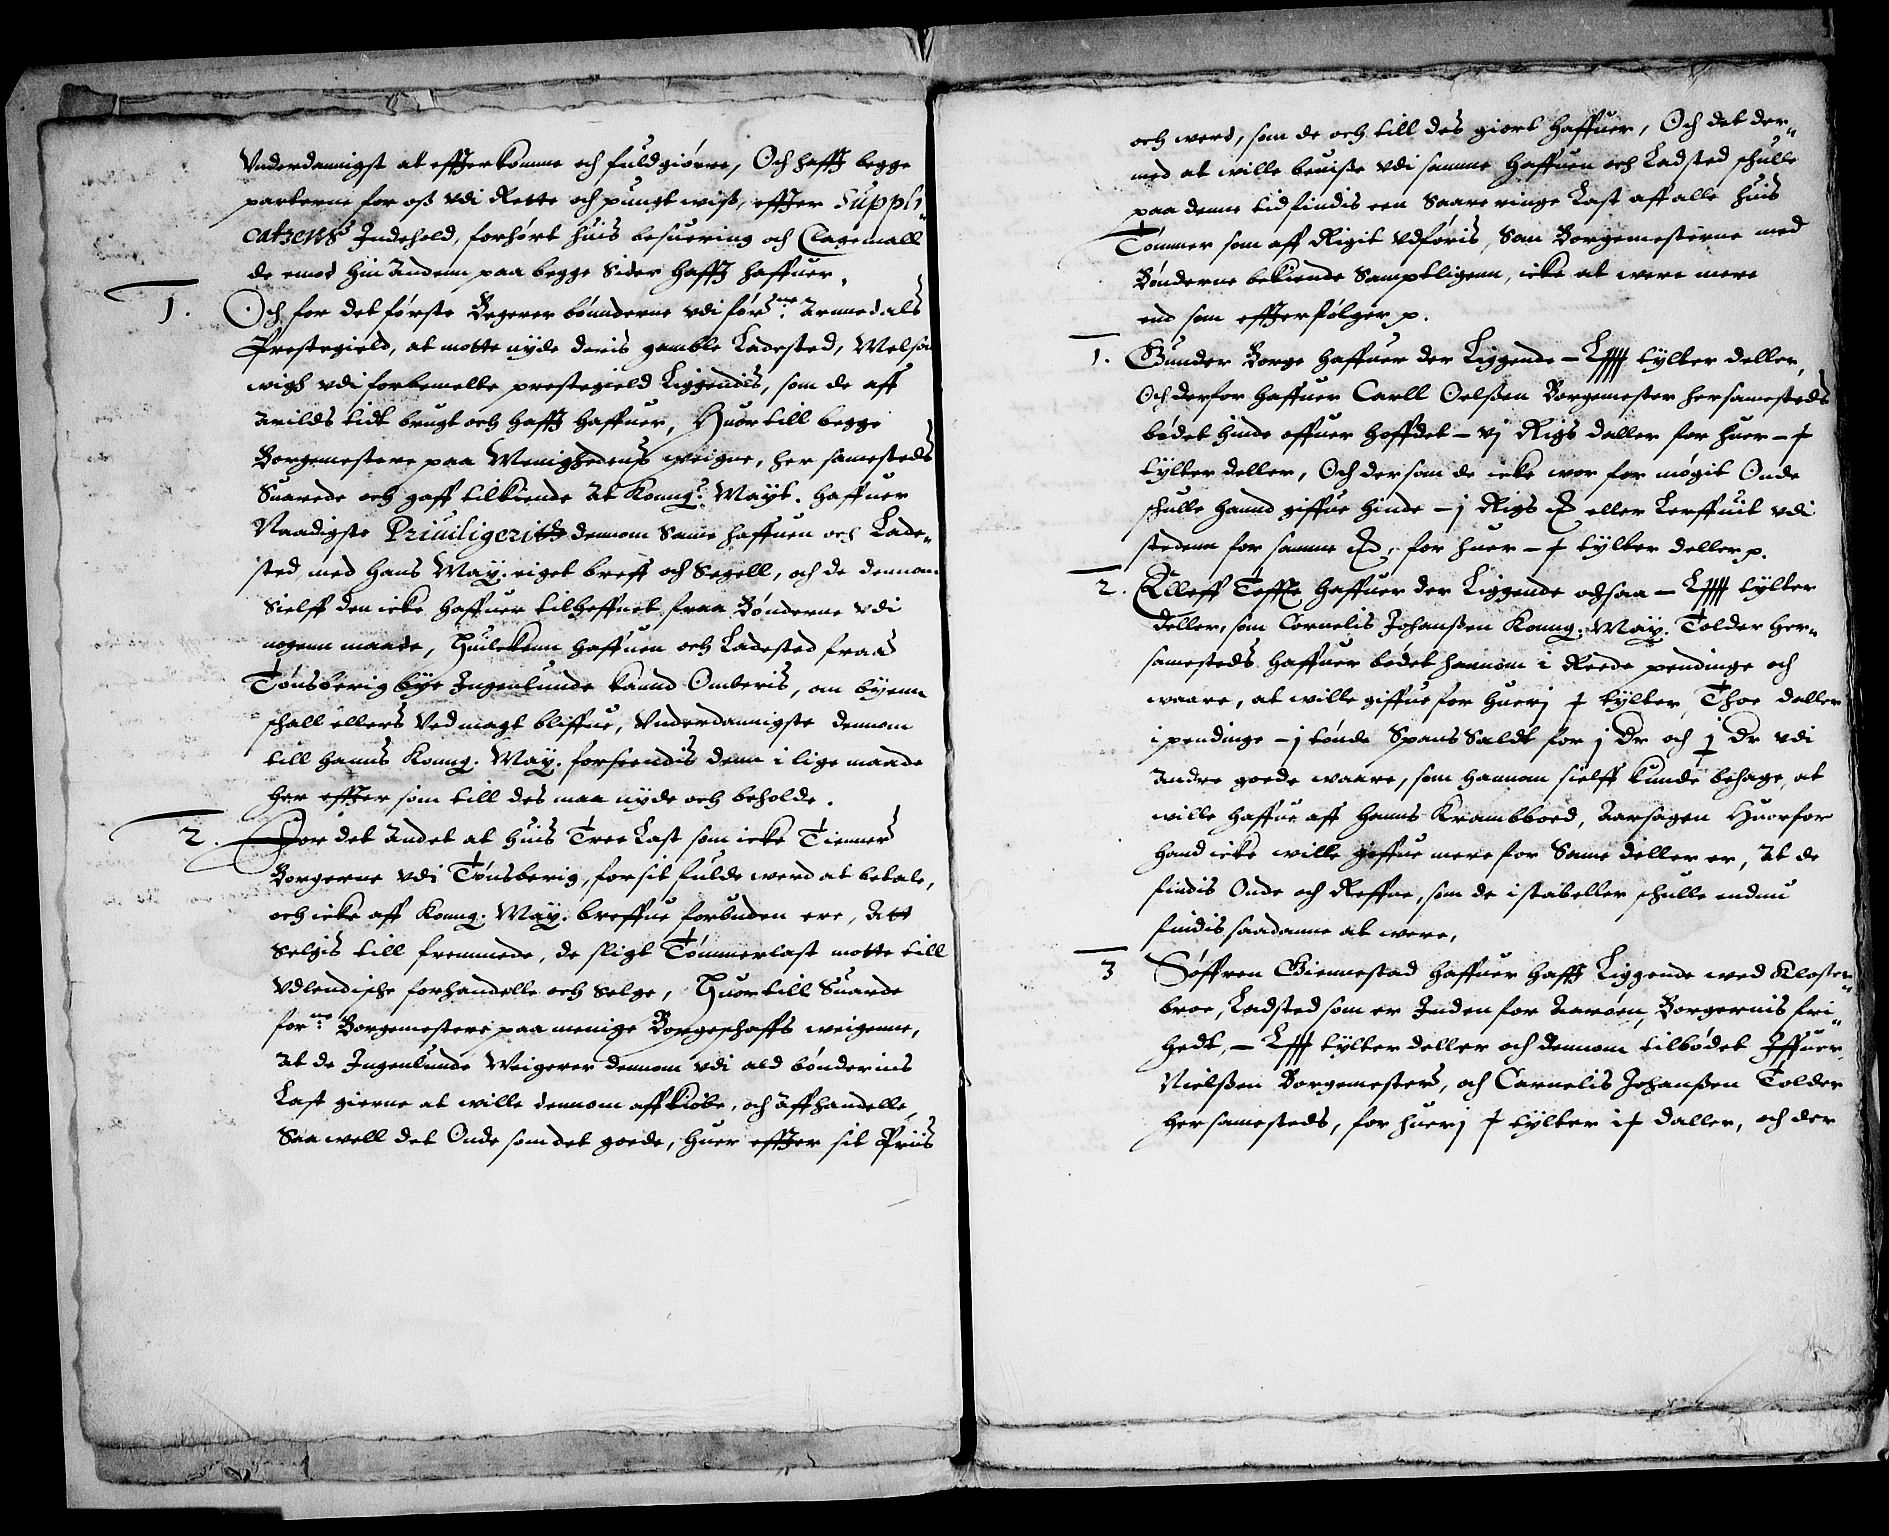 Vnderdannigst at effterkomme och fuldgiøere, Och hafft begge
parterne for oß vdi Rette och pungt wiß, effter Suppli„
catzens Indehold, forhørt huis besuering och Clagemall
de emod hin Andenn paa begge Sider hafft haffuer.
1. Och for det første Begerer bønnderne vdi forsne: Arnnedals
Prestegield, at motte nyde deris gamble Ladested, Melsom
wigh vdi forbemelte prestegield Liggendis, som de aff
Arilds tidt brugt och hafft haffuer, Huor till begge
Borgemestere paa Menighedens weigne, her samesteds
Suarede och gaff tilkiende At Konng: Mayt. haffuer
Naadigste Priuiligerith dennom Same haffuen och Lade„
sted, med hans May. eiget breff och Segell, och de dennom
Sielff den icke haffuer tilheffuet fraa Bønderne vdi
nogenn maade, Huilckenn haffuen och Ladested fraa
Tønsberig bye Ingenlunde kannd Omberis, om byenn
schall ellers Ved magt bliffue, Vnderdannigste dennom
till hanns Konng. May. forseendis denn i lige maade
her effter som till des maa nyde och beholde.
2. For det Andet at huis Tree Last som icke Tienner
Borgerne vdi Tønsberig, for sit fulde werd at betale,
och icke aff Konng. May. breffue forbuden ere, Att
Selgis till fremmede, de sligt Tømmerlast motte till
Vdlendische forhandelle och Selge, Huortill Suarde
forne: Borgemestere paa menige Borgeschaffs weigenne,
At de Ingenlunde Weigerer dennom vdi ald bønderins
Last gierne at wille dennom affkiøbe, och affhandelle,
Saa well det Onde som det goede, huer effter sit Priis
och werd, som de och till des giort haffuer, Och det der„
med at wille beuiße vdi samme haffuen och Ladsted schulle
paa denne tid findis een Saare ringe Last aff alle huis
Tømmer som aff Rigit Vdføris, Som Borgemesterne med
Bønderne bekiende Samptligenn, icke at were mere
end som effterfølger p.
1. Gunder Borge haffuer der Liggende – tylter deller,
Och derfor haffuer Carll Oelßen Borgemester hersamesteds
bødet hinde offuer hoffdet – vj Rigs daller for huer –
tylter deller, Och dersom de icke wor for møgit Onde
schulle hannd giffue hinde – j Rigs eller Lerffuit vdi
stedenn for samme, for huer – tylter deller p.
2. Elleff Teffte haffuer der Liggende ochsaa – tylter
deller, som Cornelis Johanßen Konng. May. Tolder her„
samesteds haffuer bødet hannom i Reede pendinge och
waare, at wille giffue for huerj tylter, Thoe daller
i pendinge – j tønde Spans Saldt for j Dr och j Dr vdi
Andre goede waare, som hannom sielff kunde behage, at
wille haffue aff hanns Krambboed, Aarsagen Huorfor
hand icke wille geffue mere for Same deller er, At de
findis Onde och Reffne, som de i stabeller schulle endnu
findis saadanne at were,
3 Søffren Giennestad haffuer hafft Liggende wed Kloster„
broe, Ladsted som er Inden for Aarøen, Borgernis fri„
hedt, – tylter deller och dennom tilbødet Iffuer
Nielßen Borgemesters, och Carnelis Johanßen Tolder
hersamesteds, for huerj tylter daller, och der